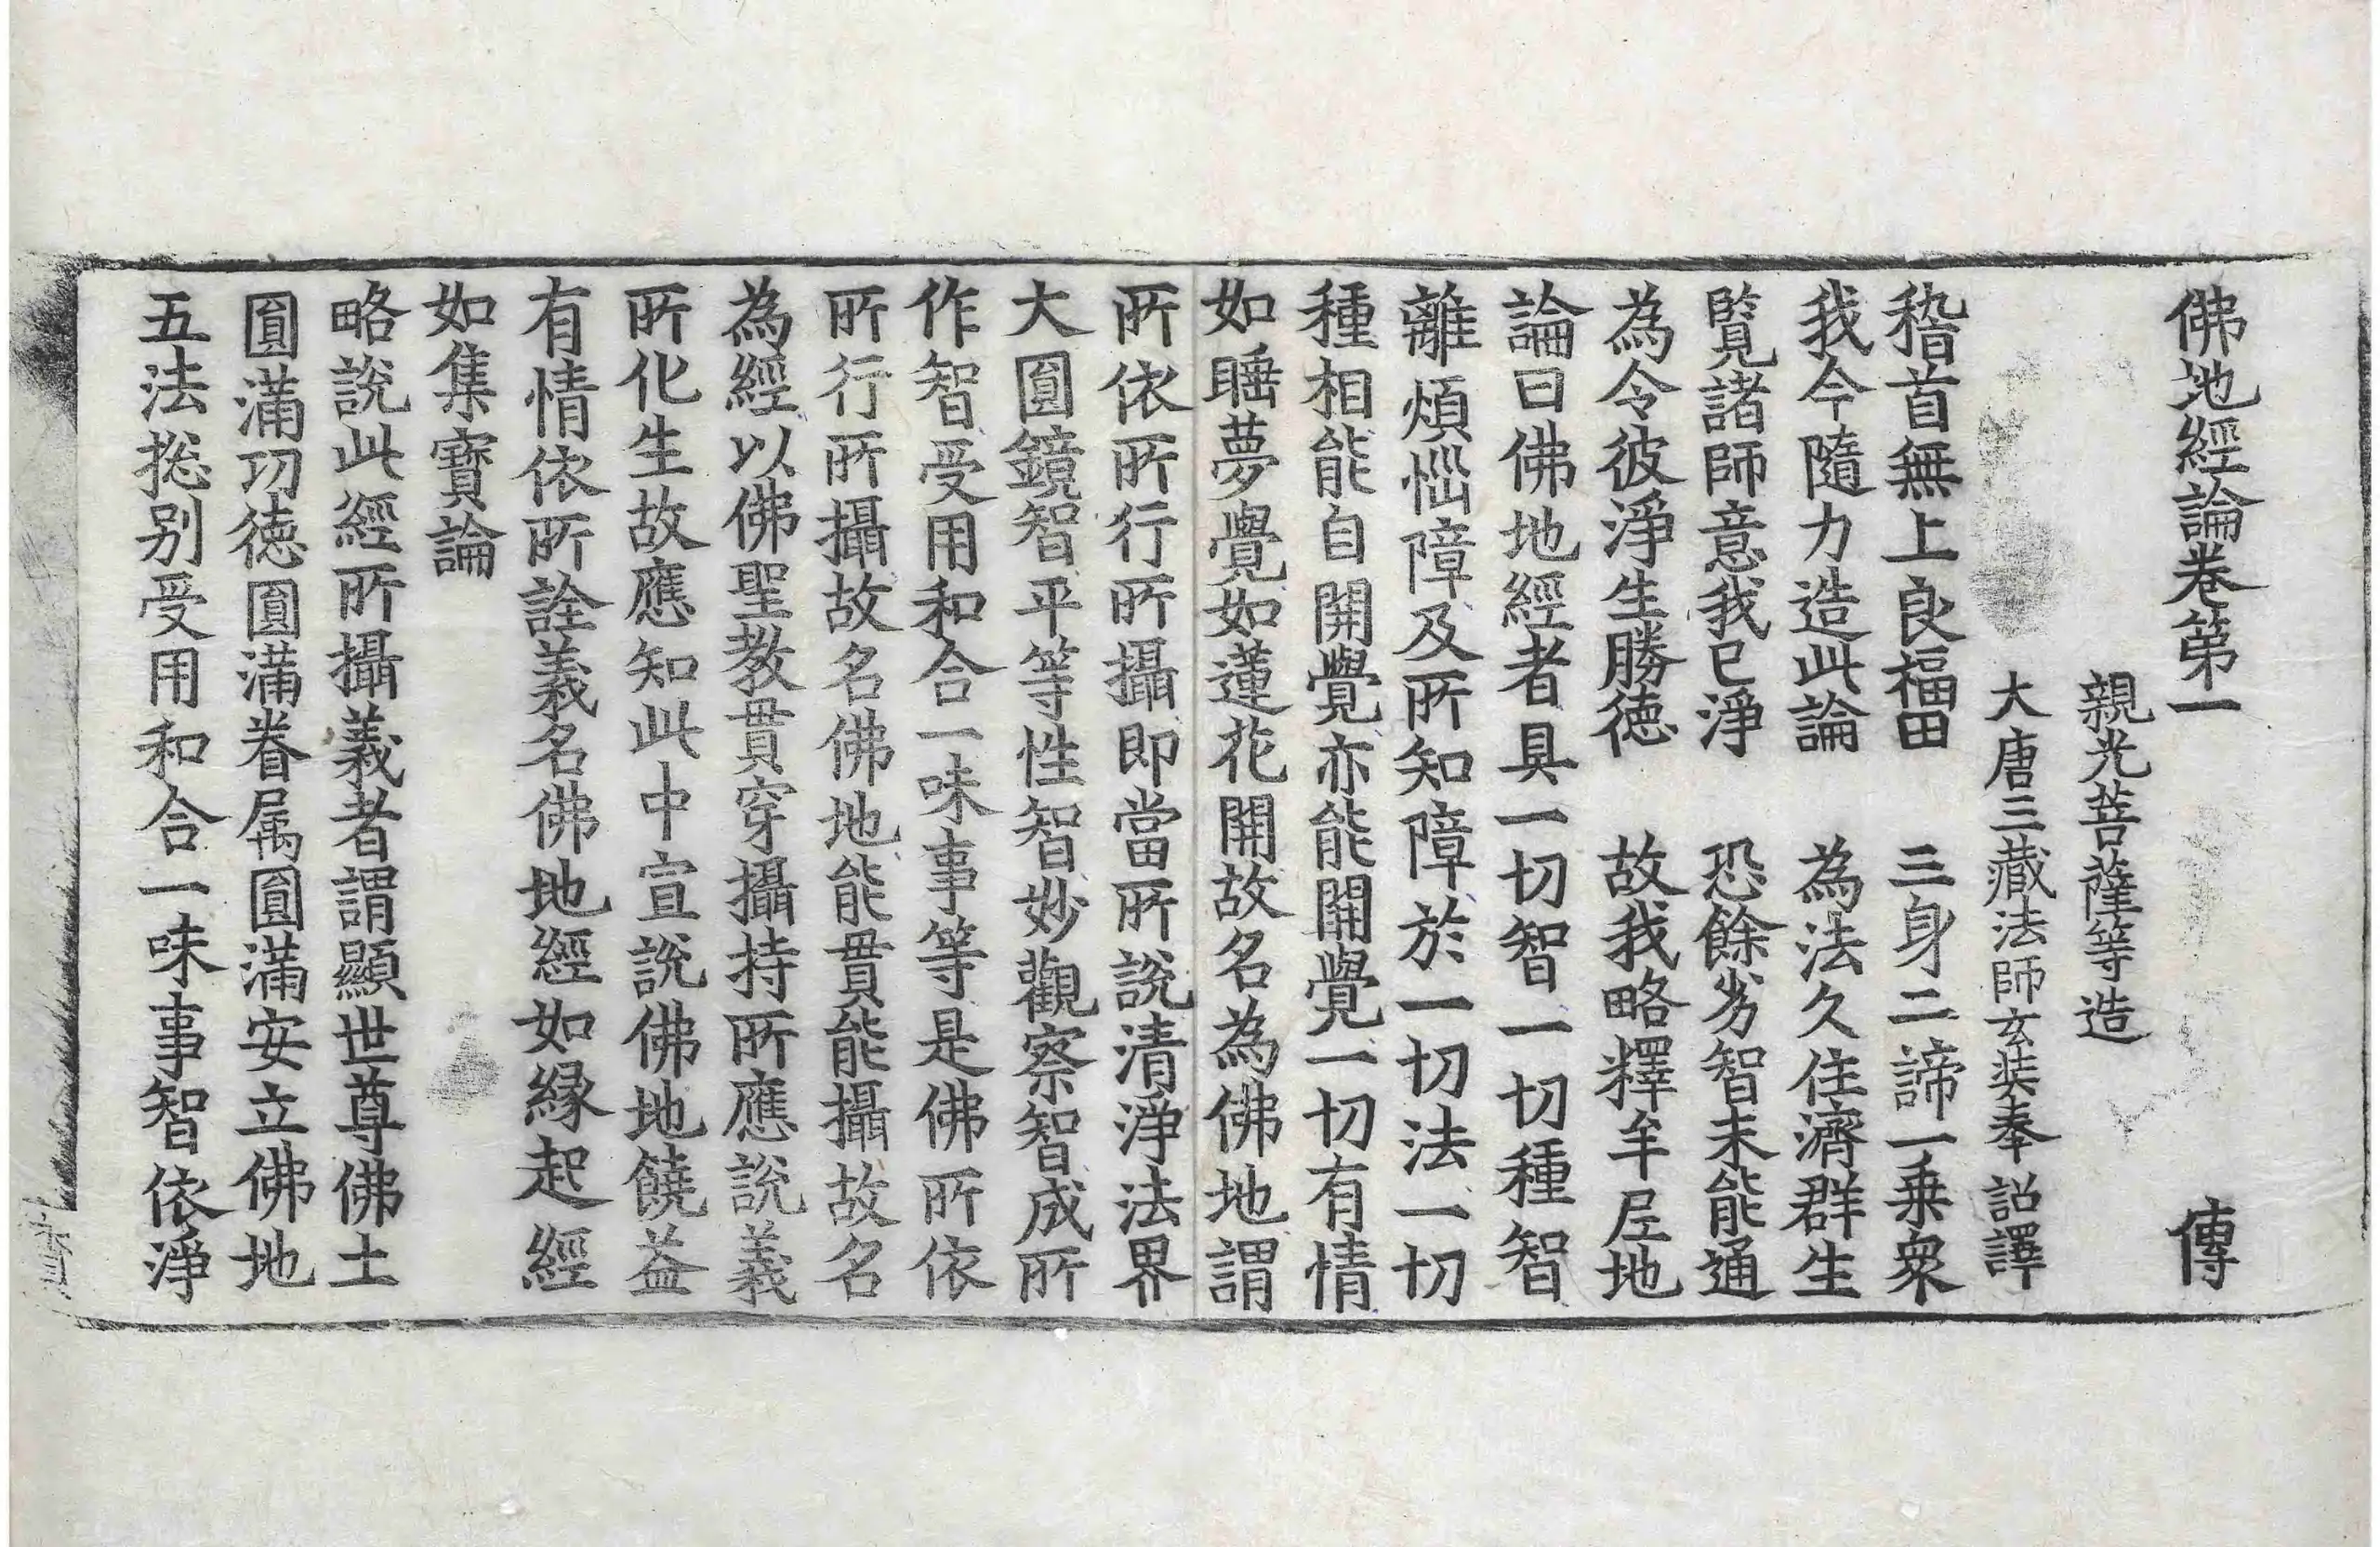 佛地經論卷第一　傳
親光菩薩等造
大唐三藏法師玄奘奉　詔譯
稽首無上良福田　三身二諦一乗衆
我今隨力造此論　為法久住濟群生
覽諸師意我已淨　恐餘劣智未能通
為令彼淨生勝德　故我略釋牟尼地
論曰佛地經者具一切智一切種智
離煩惱障及所知障於一切法一切
種相能自開覺亦能開覺一切有情
如睡夢覺如蓮花開故名為佛地謂
所依所行所攝即當所說清淨法界
大圓鏡智平等性智妙觀察智成所
作智受用和合一味事等是佛所依
所行所攝故名佛地能貫能攝故名
為經以佛聖教貫穿攝持所應說義
所化生故應知此中宣說佛地饒益
有情依所詮義名佛地經如緣起經
如集寶論
略說此經所攝義者謂顯世尊佛土
圓滿功德圓滿眷属圓滿安立佛地
五法揔别受用和合一味事智依淨